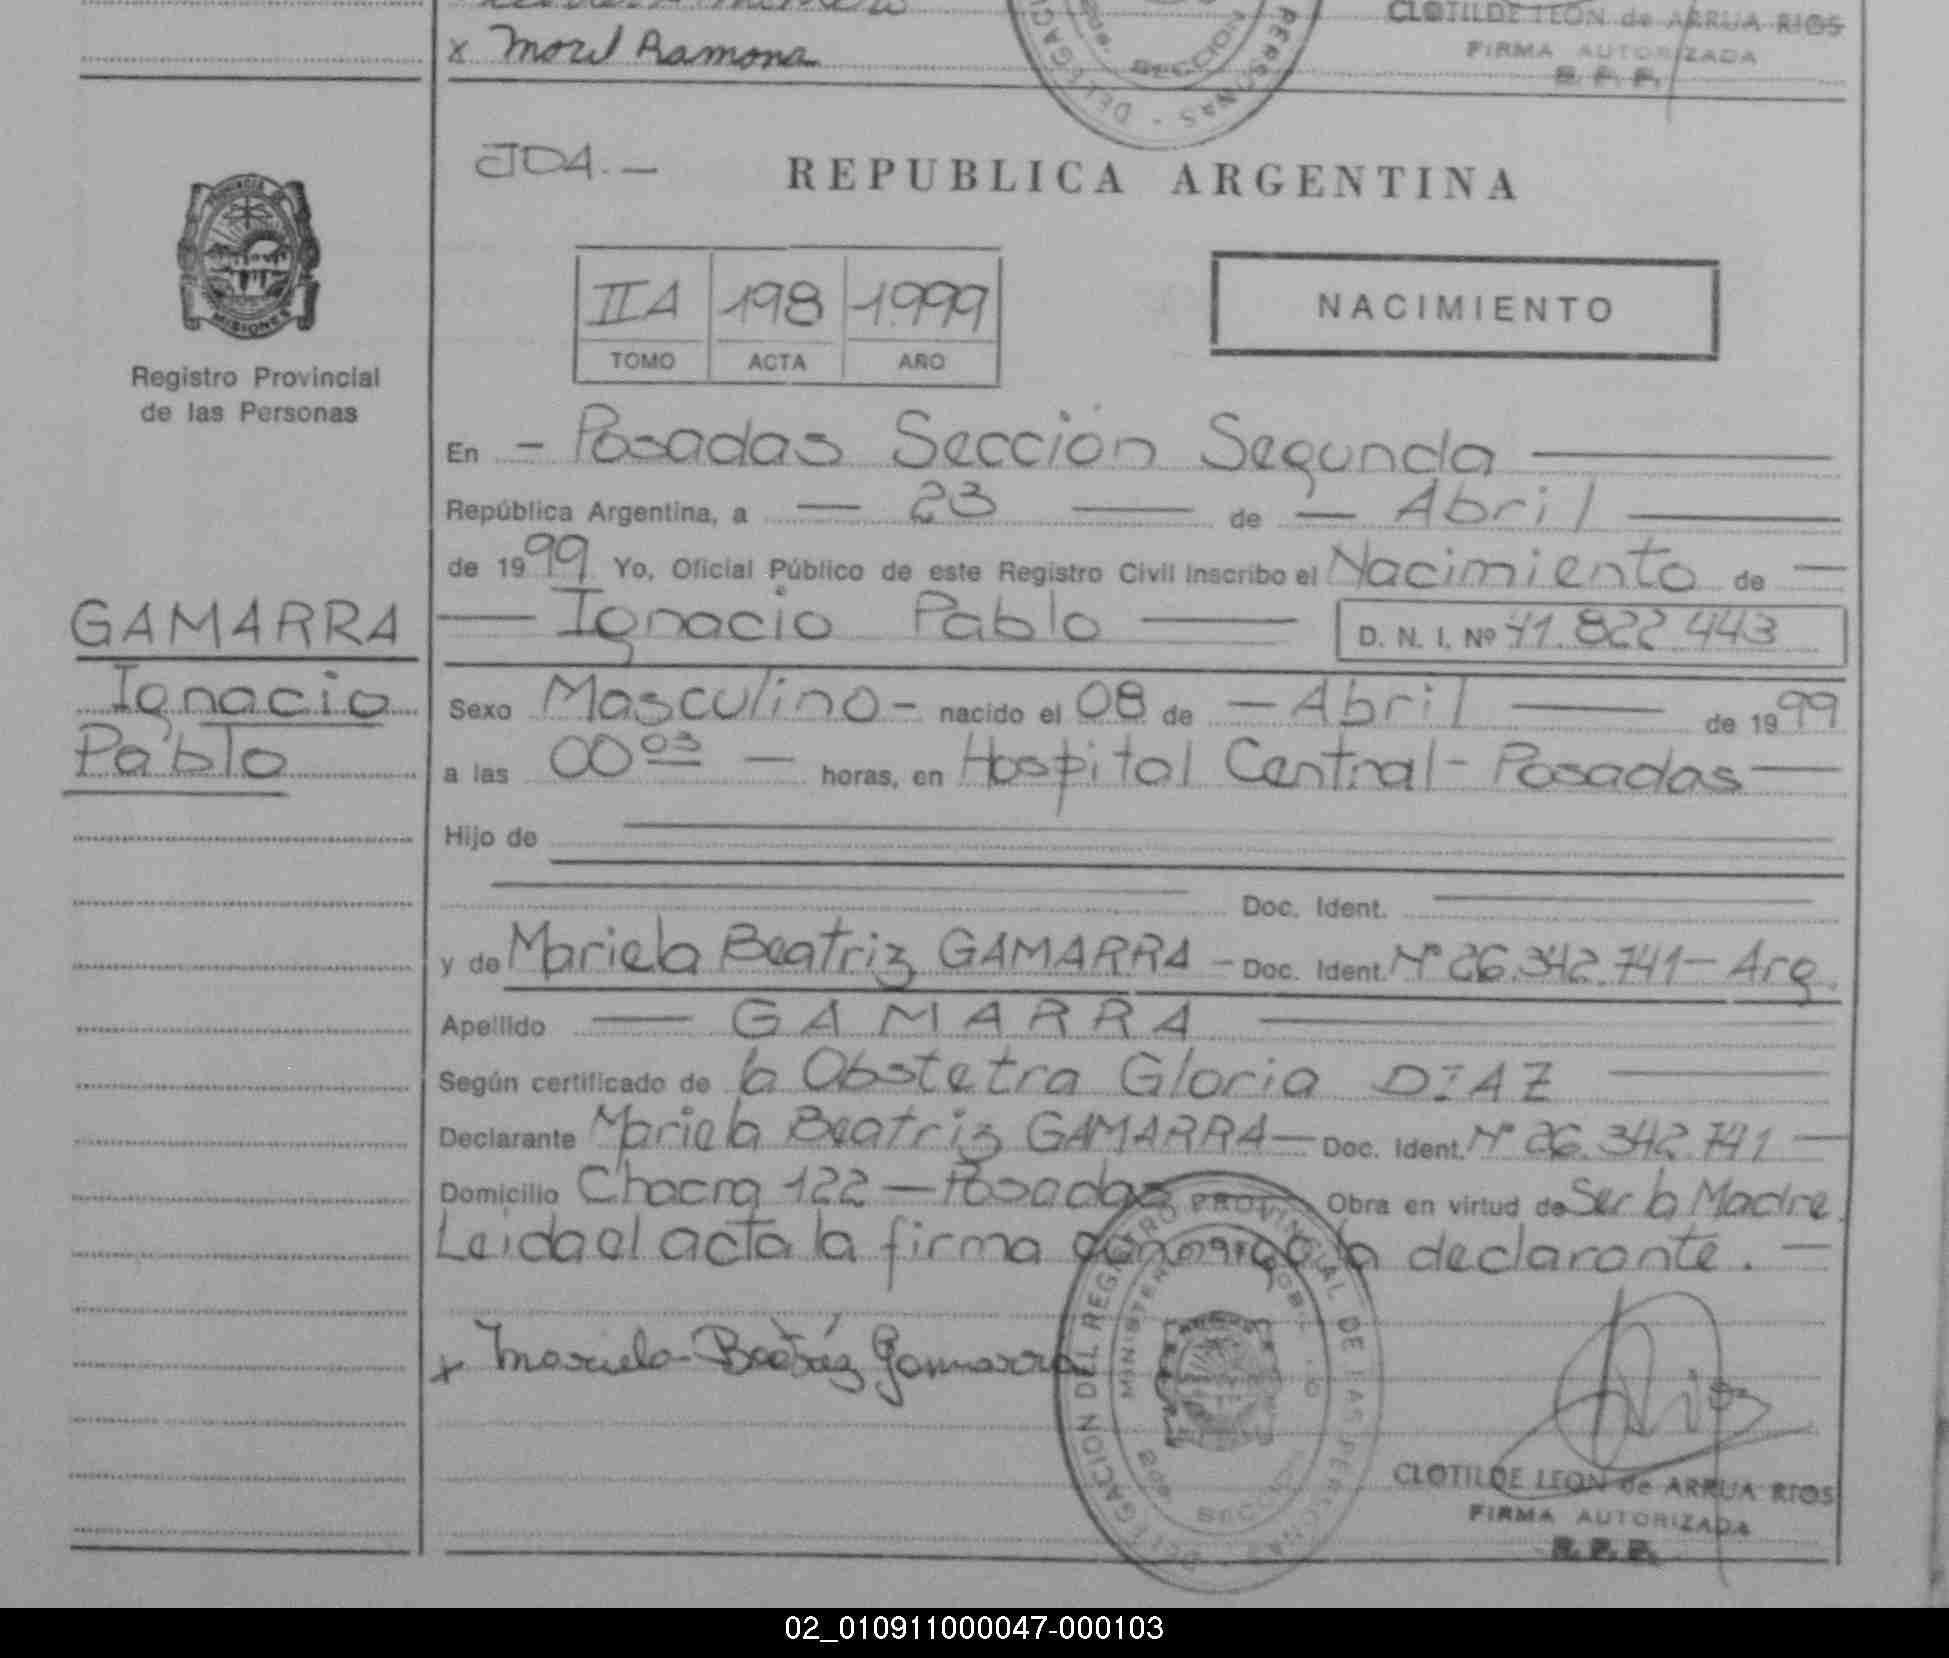 x Morel Ramona
CLOTILDE LEON de ARRUA RIOS
FIRMA AUTORIZADA
R. P. P.
JDA.-
REPUBLICA ARGENTINA
PROVINCIA DE
MISIONES
Registro Provincial
de las Personas
IIA 198 1999
TOMO ACTA AÑO
NACIMIENTO
En - Posadas Sección Segunda
República Argentina, a — 23 — de — Abril
de 1999 Yo, Oficial Público de este Registro Civil Inscribo el Nacimiento de —
GAMARRA
Ignacio
Pablo
— Ignacio Pablo — D. N. I. Nº 41.822.443
Sexo Masculino - nacido el 08 de - Abril — de 1999
a las 00 03 — horas, en Hospital Central - Posadas —
Hijo de
Doc. Ident.
y de Mariela Beatriz GAMARRA - Doc. Ident. Nº 26.342.741 - Arg.
Apellido — GAMARRA —
Según certificado de la Obstetra Gloria DIAZ —
Declarante Mariela Beatriz GAMARRA — Doc. Ident. Nº 26.342.741 —
Domicilio Chacra 122 — Posadas Obra en virtud de Ser la Madre.
Leida el acta la firma conmigo la declarante. —
x Mariela Beatriz Gamarra
DELEGACION DEL REGISTRO PROVINCIAL DE LAS PERSONAS
MINISTERIO GOB.
2da. SECCION
CLOTILDE LEON de ARRUA RIOS
FIRMA AUTORIZADA
R. P. P.
02_010911000047-000103